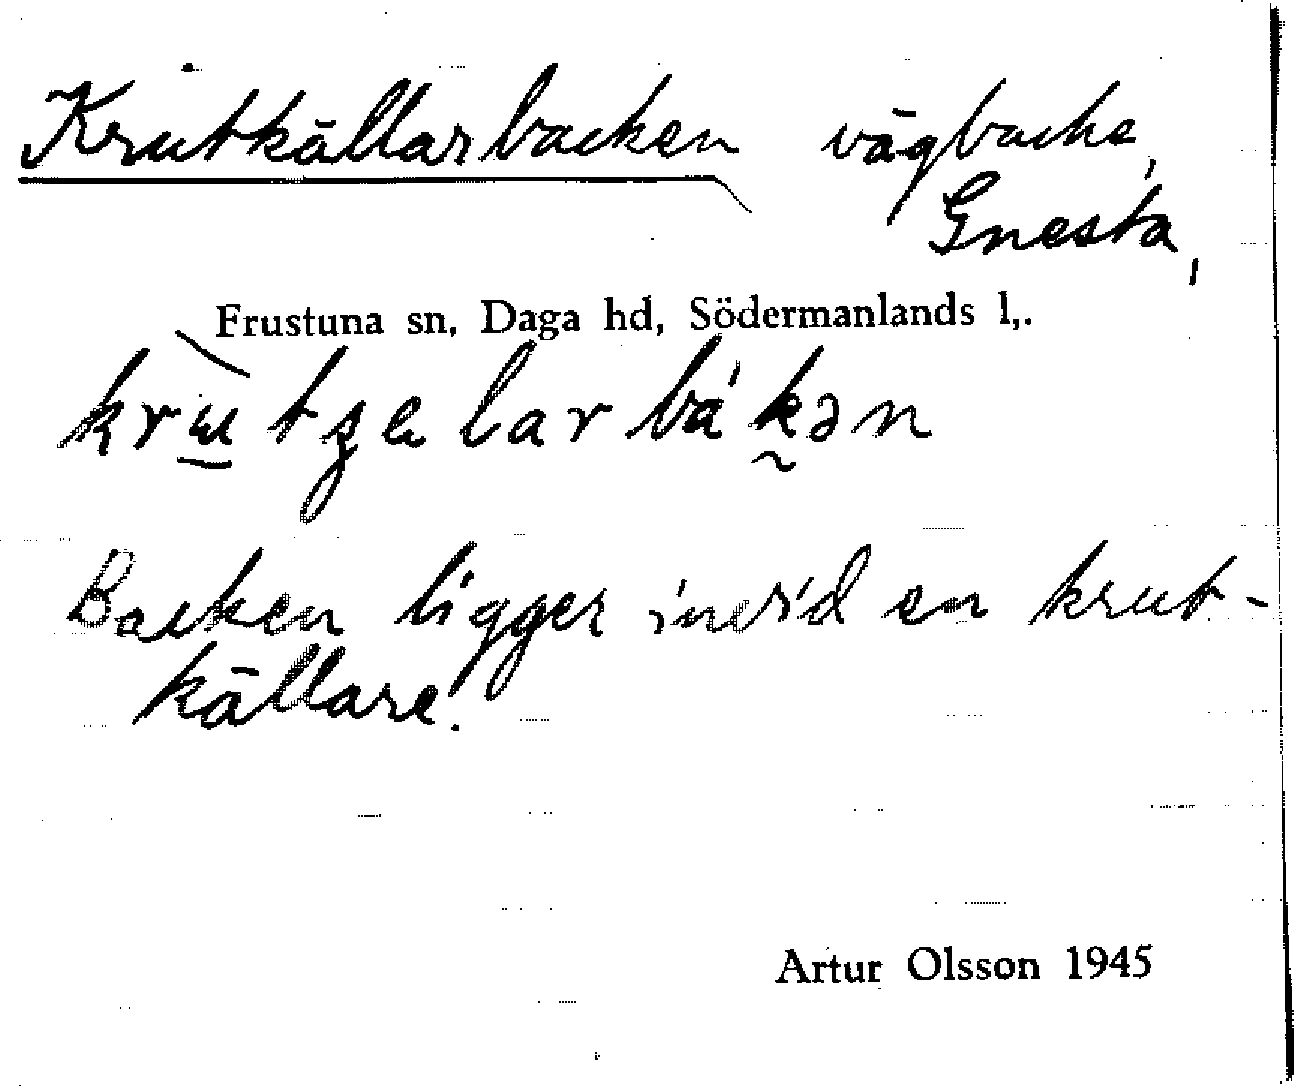 Krutkällarbacken vägbacke,
Gnesta,
Frustuna sn, Daga hd, Södermanlands l,.
krɯ̀tȿelarbákən
Backen ligger invid en krut-
källare.
Artur Olsson 1945